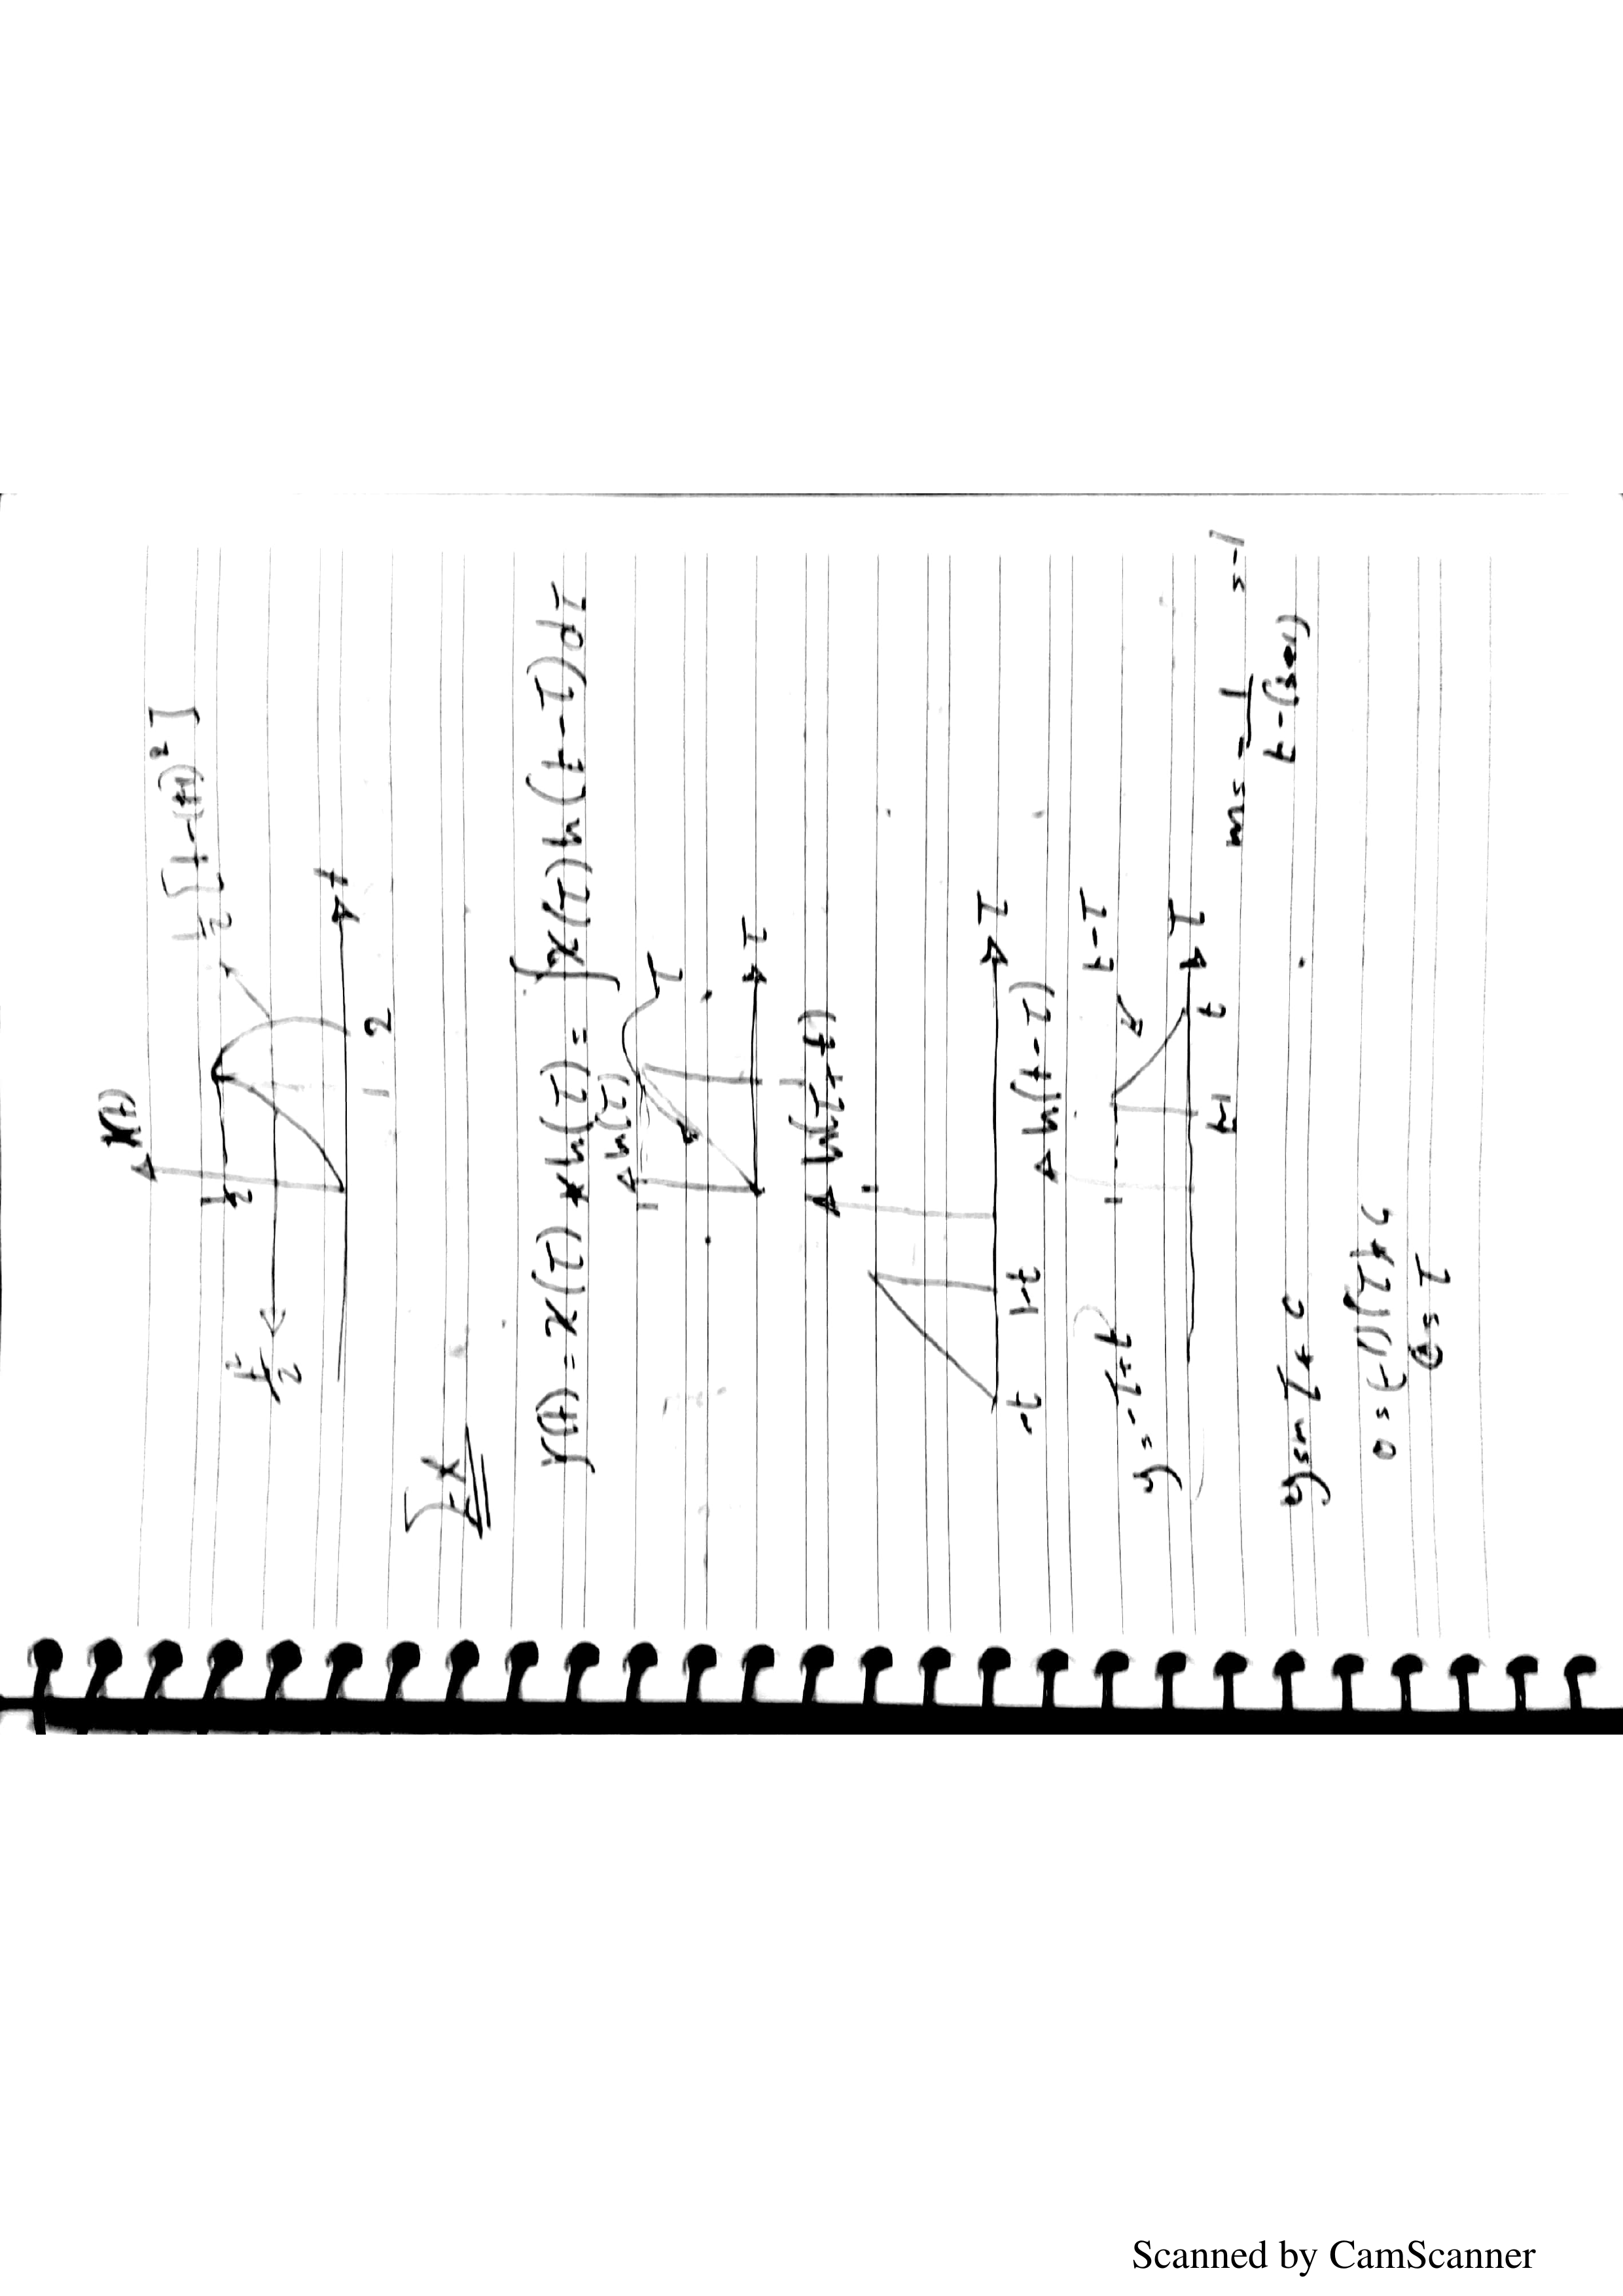 x(t)
1/2 [1-(t-1)²]
1/2
t²/2
t
1 2
Ex
y(t) = x(τ) * h(τ) = ∫x(τ)h(t-τ)dτ
h(τ)
1
τ
τ
h(τ+t)
τ
-t 1-t
h(t-τ)
t-τ
y = -τ+t
1
τ
t-1 t
m = 1/t-(t-1)
= -1
y = mτ + c
0 = (-1)(τ) + c
c = τ
Scanned by CamScanner